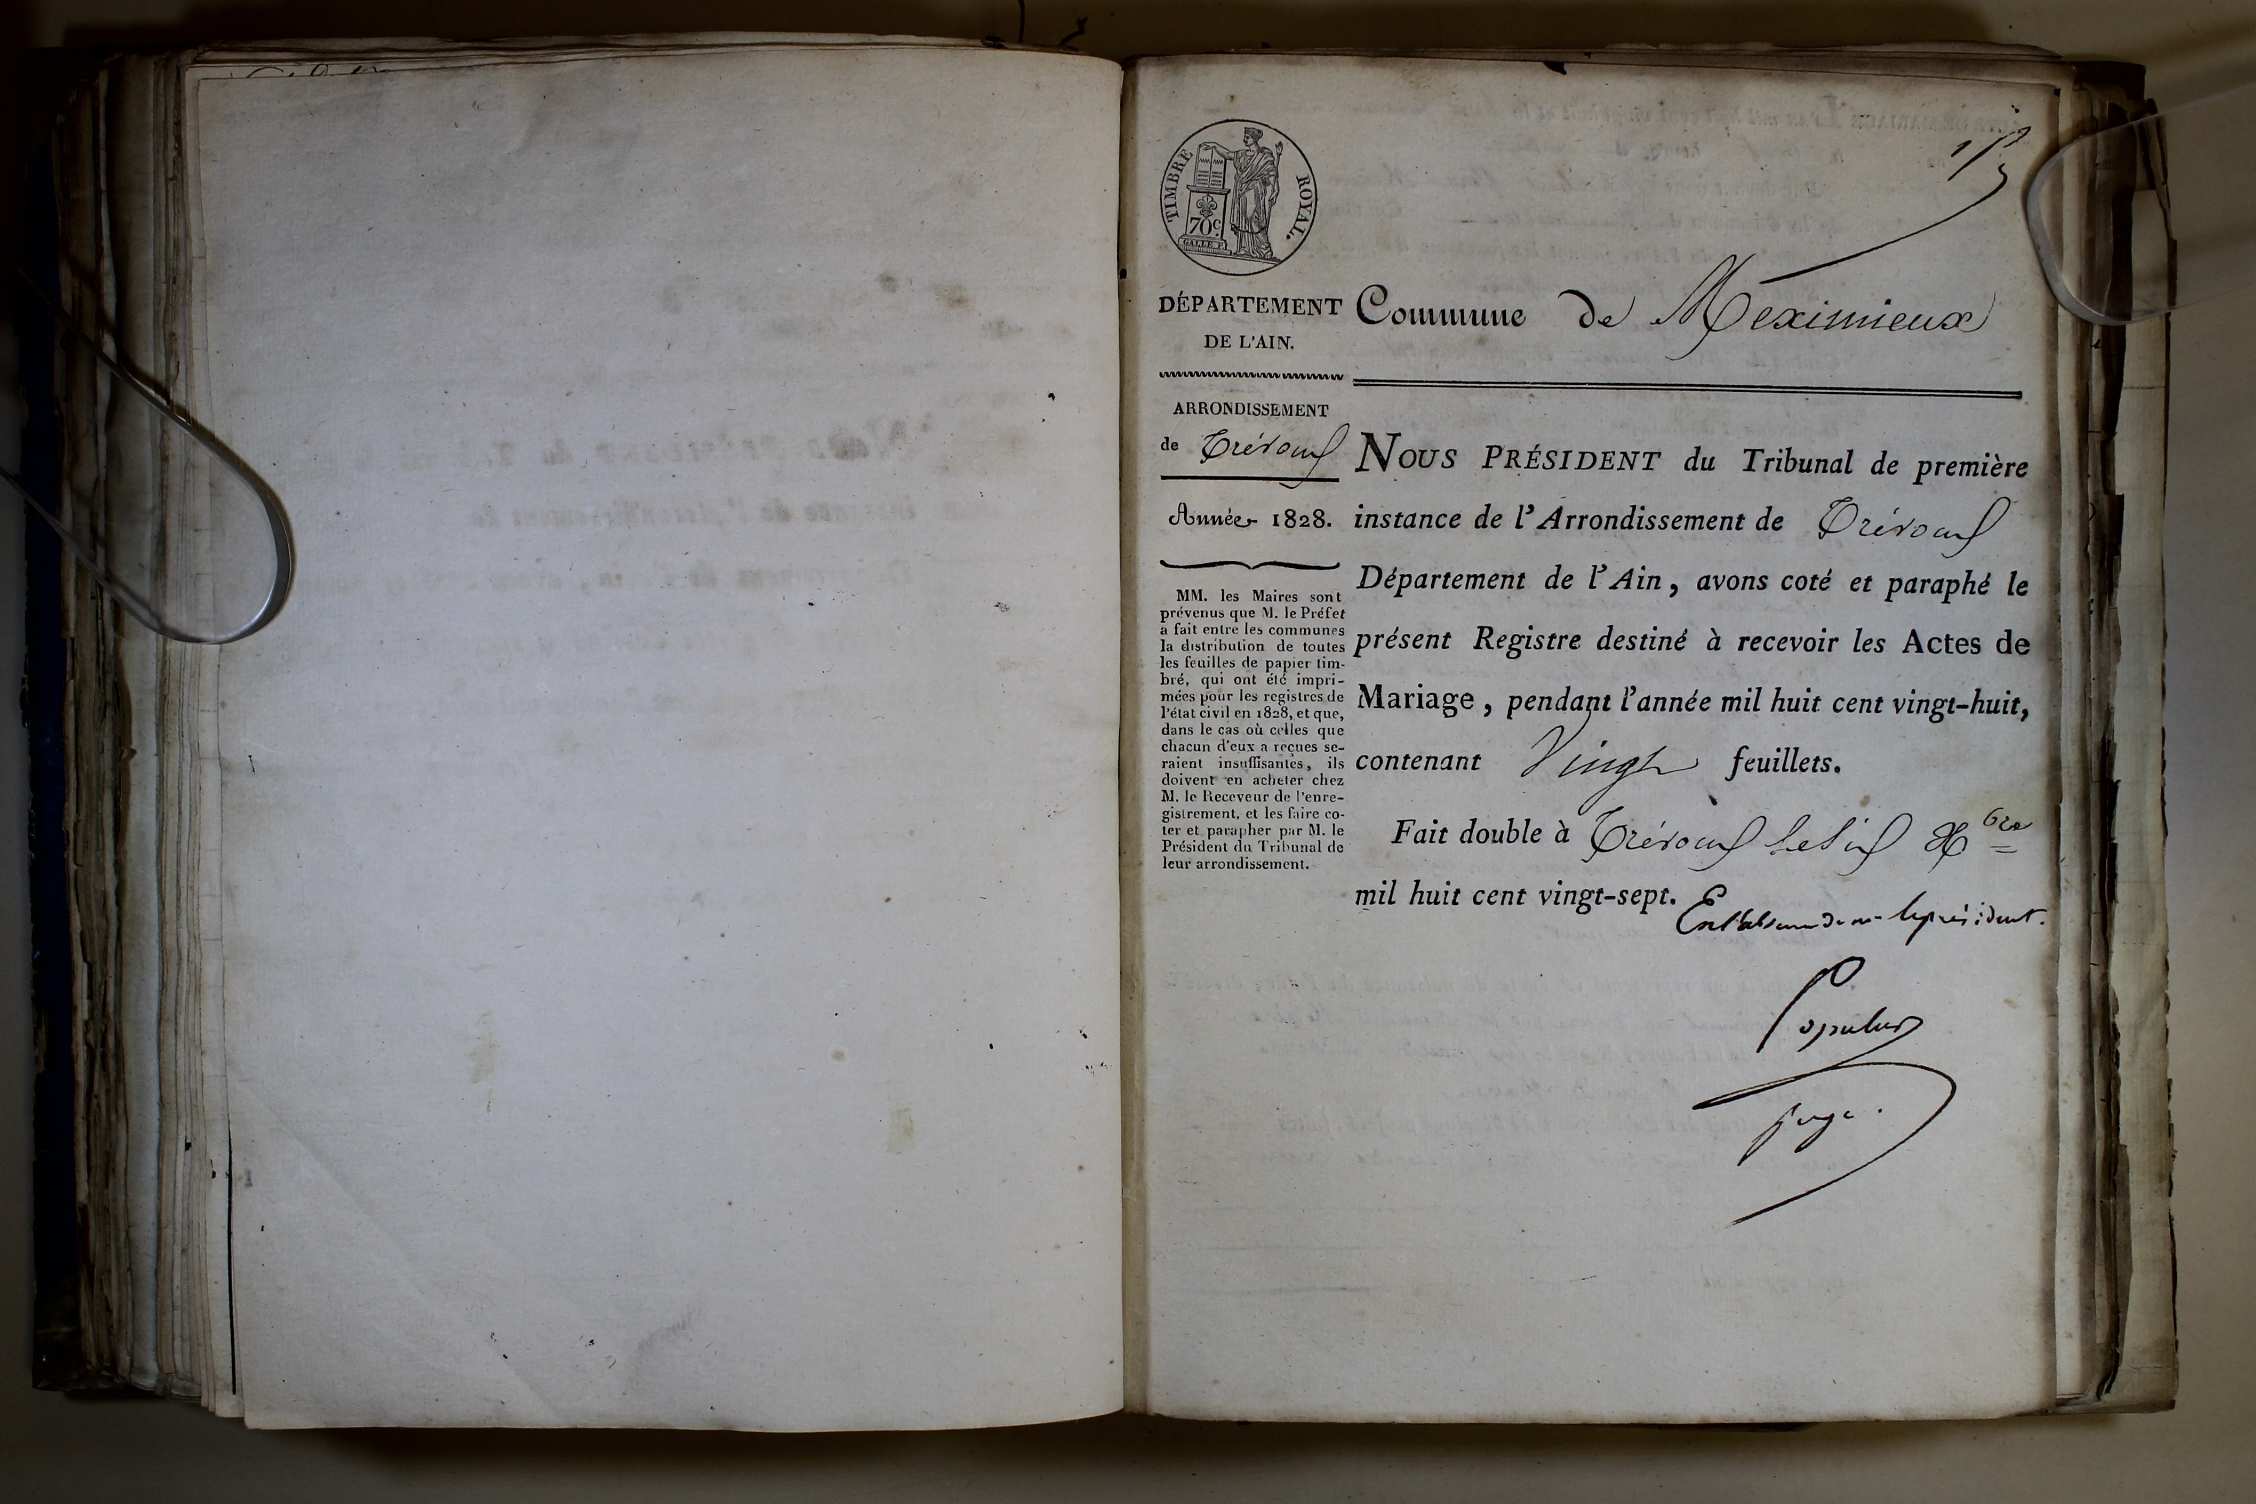 TIMBRE ROYAL.
70 c.
GALLE F.
DÉPARTEMENT
DE L'AIN.
Commune de Meximieux
ARRONDISSEMENT
de Trévoux
Année 1828.
MM. les Maires sont
prévenus que M. le Préfet
a fait entre les communes
la distribution de toutes
les feuilles de papier tim-
bré, qui ont été impri-
mées pour les registres de
l'état civil en 1828, et que,
dans le cas où celles que
chacun d'eux a reçues se-
raient insuffisantes, ils
doivent en acheter chez
M. le Receveur de l'enre-
gistrement, et les faire co-
ter et parapher par M. le
Président du Tribunal de
leur arrondissement.
NOUS PRÉSIDENT du Tribunal de première
instance de l'Arrondissement de Trévoux
Département de l'Ain, avons coté et paraphé le
présent Registre destiné à recevoir les Actes de
Mariage, pendant l'année mil huit cent vingt-huit,
contenant Vingt feuillets.
Fait double à Trévoux le six Xbre
mil huit cent vingt-sept.
En l'absence de mr le président.
Populus
juge.